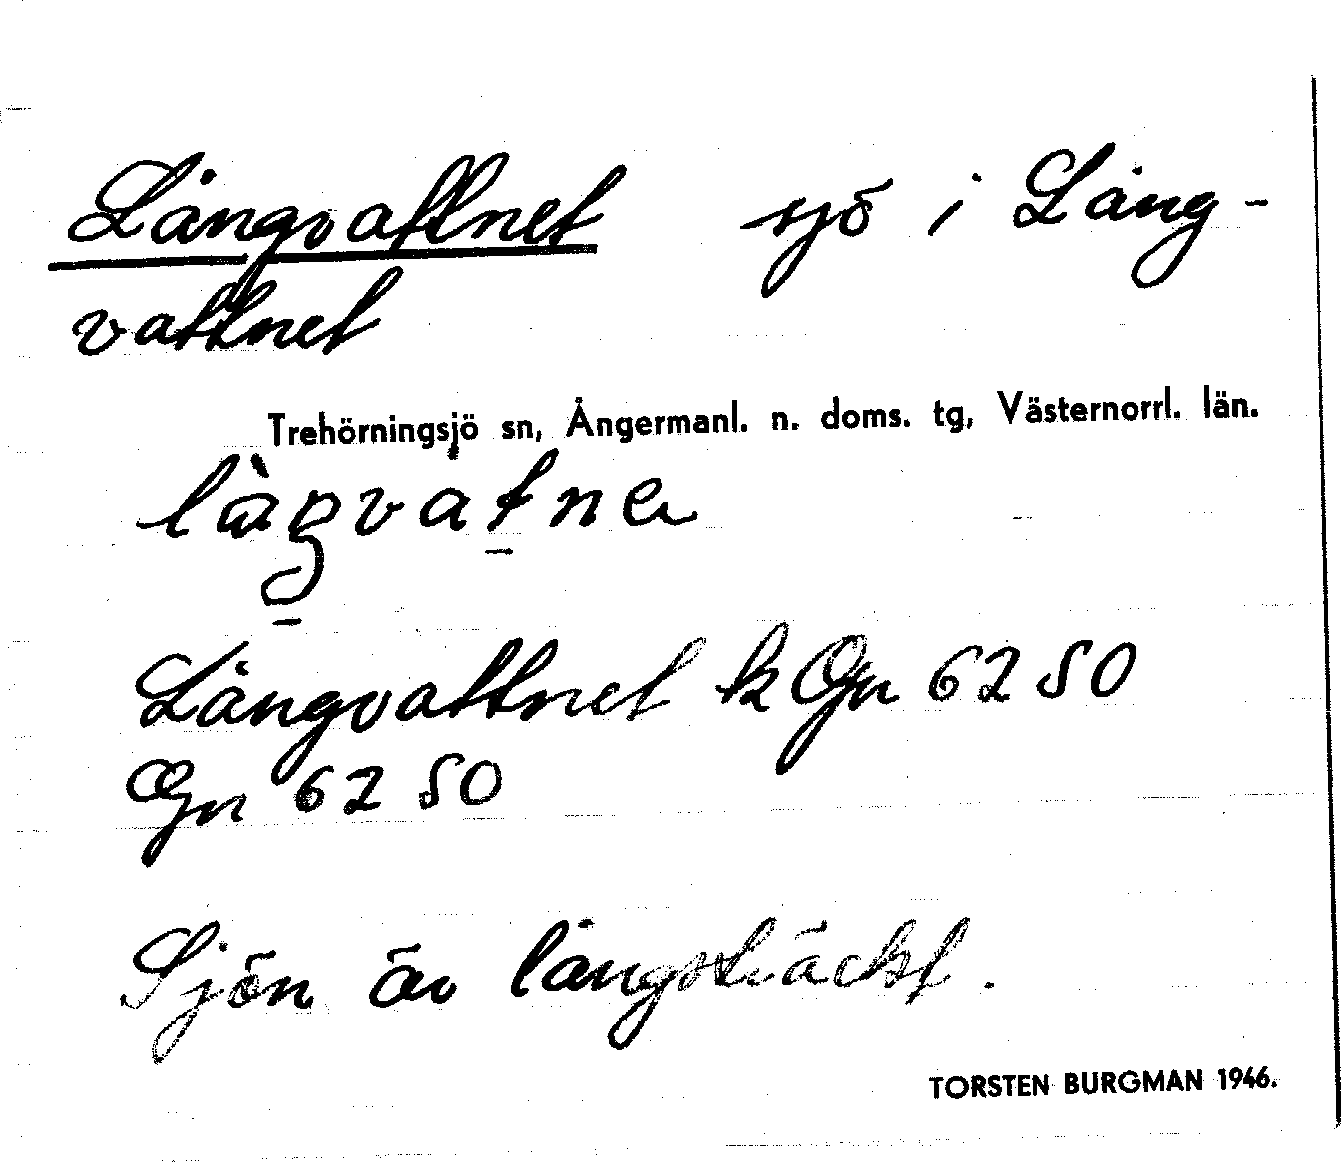 Långvattnet sjö i Lång-
vattnet
Trehörningsjö sn, Ångermanl. n. doms. tg, Västernorrl. län.
Långvattnet k Gn 62 50
Gn 62 50
Sjön är långsträckt.
TORSTEN BURGMAN 1946.